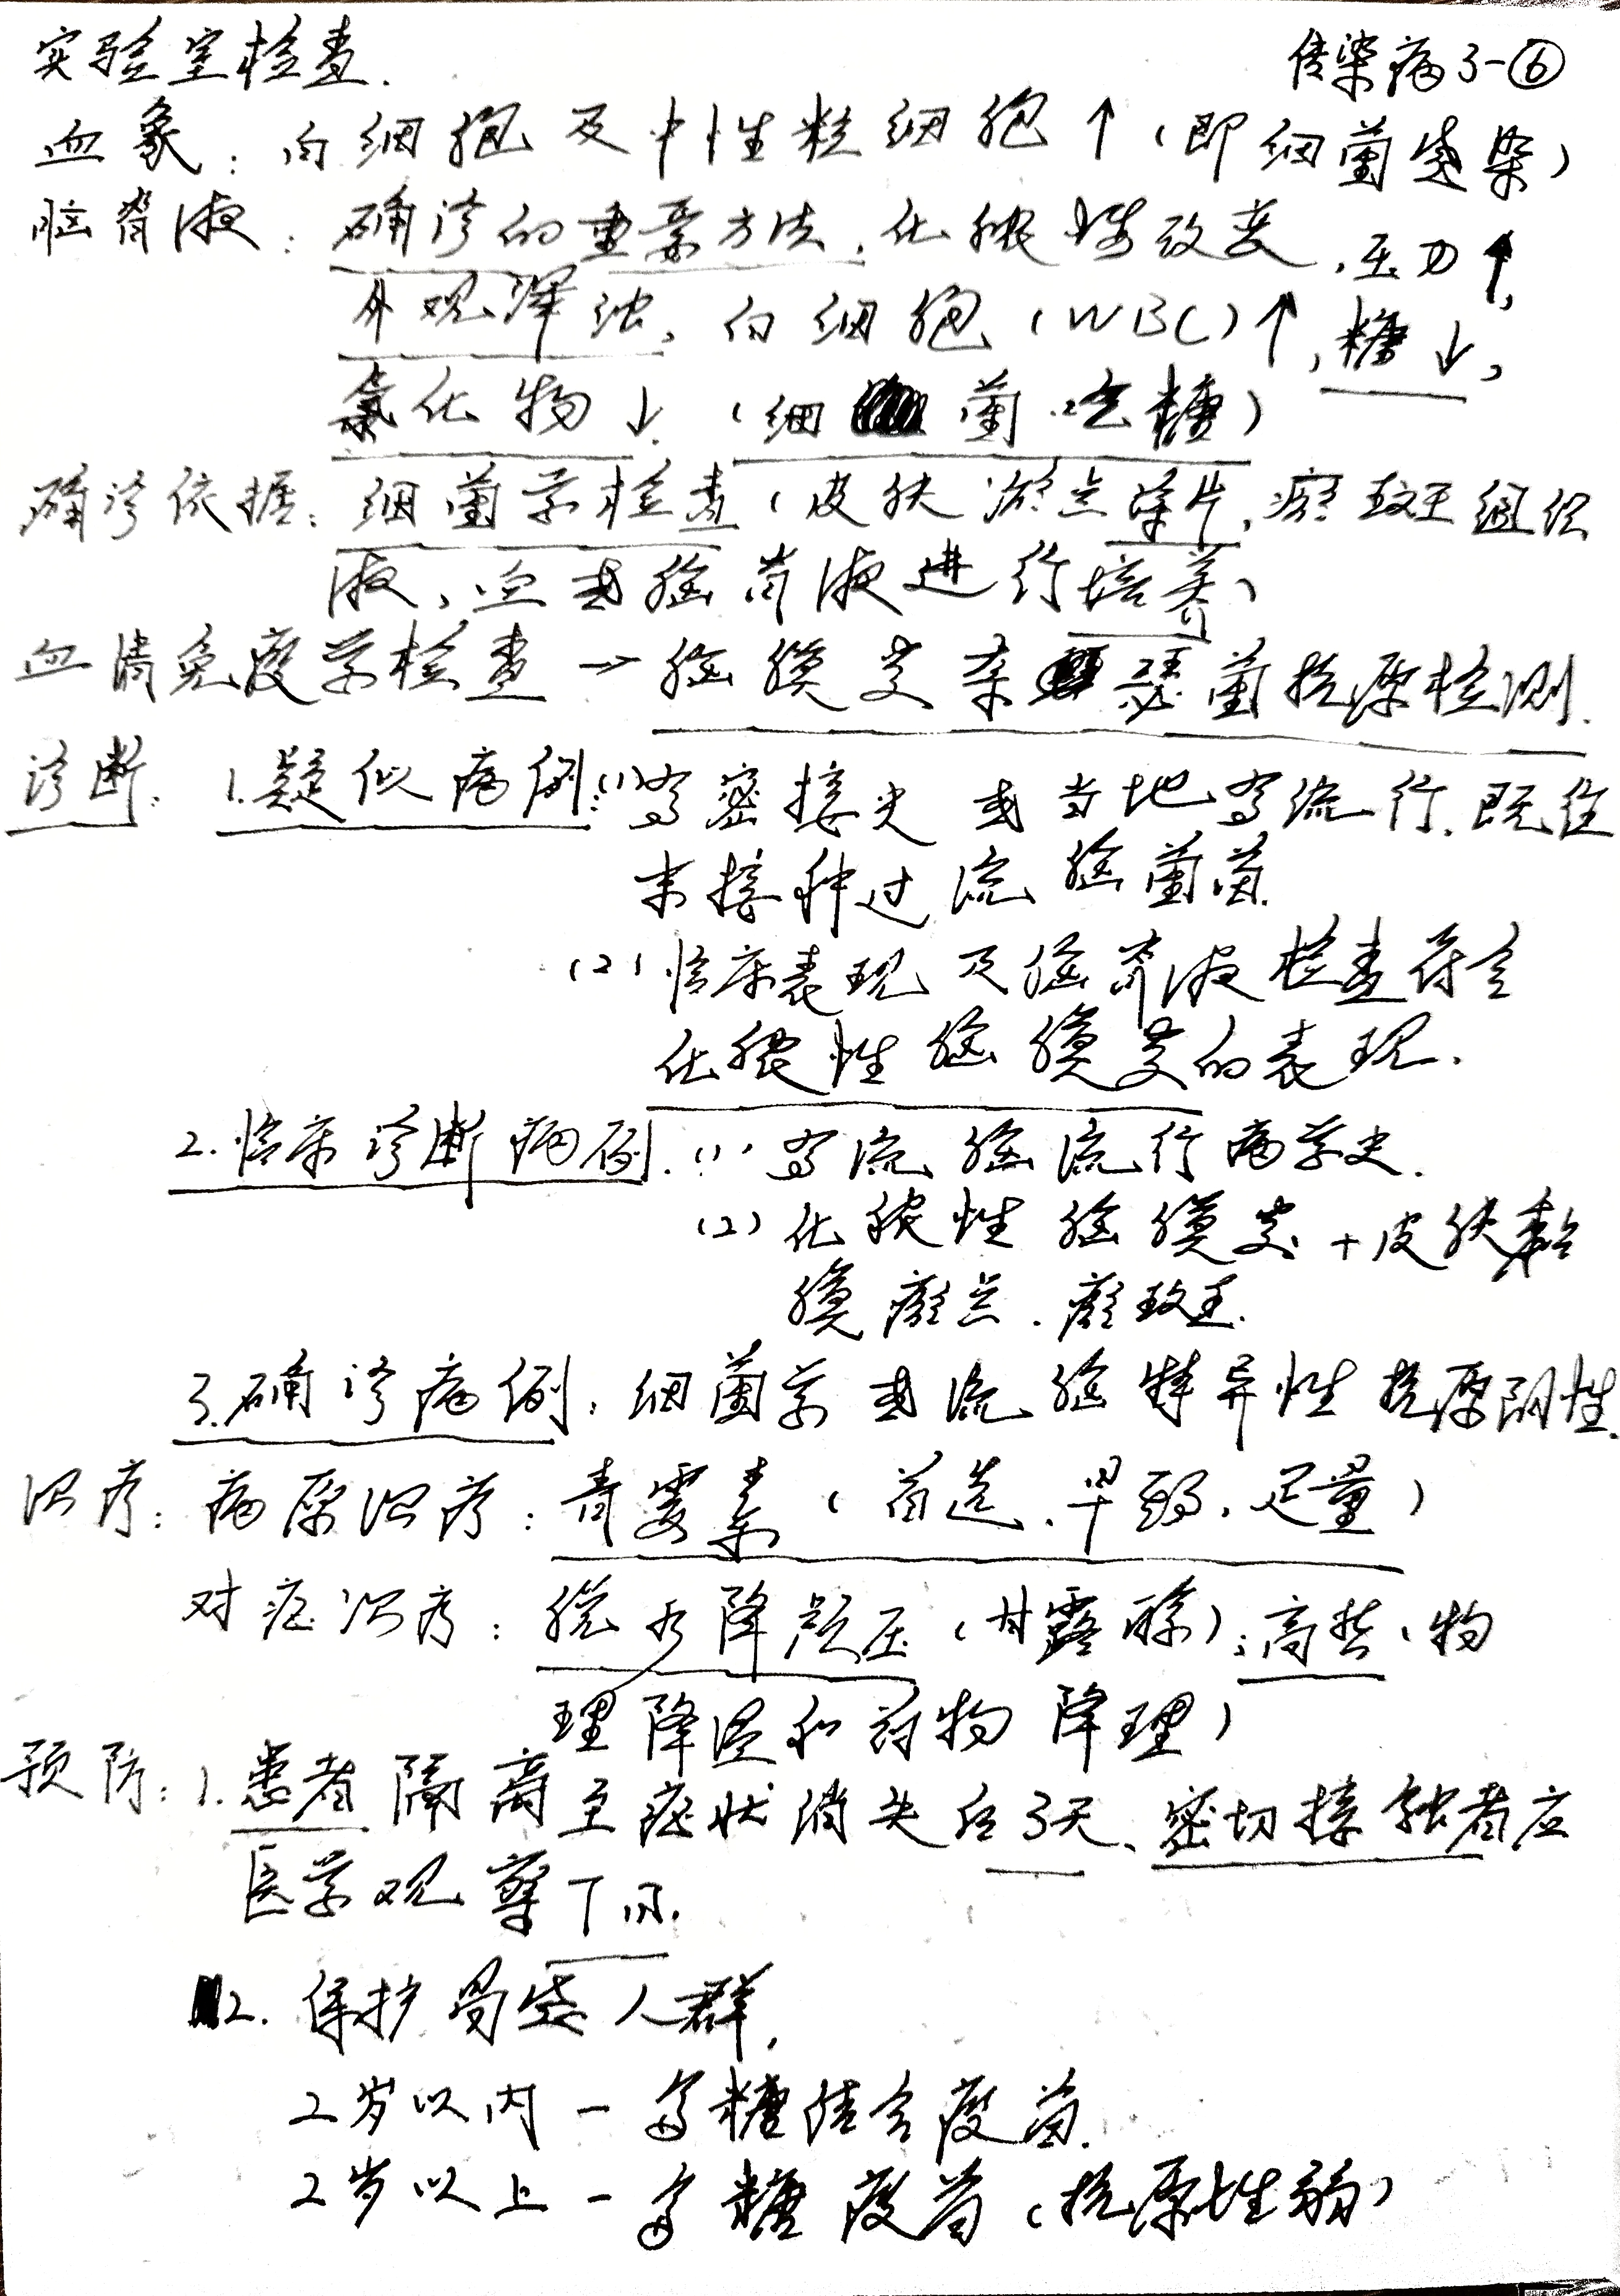 实验室检查.
传染病3-⑥
血象：白细胞及中性粒细胞↑（即细菌感染）
脑脊液：确诊的重要方法，化脓性改变，压力↑，
外观浑浊，白细胞（WBC）↑，糖↓，
氯化物↓.（细菌吃糖）
确诊依据：细菌学检查（皮肤瘀点涂片，瘀斑组织
液，血或脑脊液进行培养）
血清免疫学检查→脑膜炎奈瑟菌抗原检测.
诊断：1.疑似病例：(1)有密接史或当地有流行.既往
未接种过流脑菌苗.
(2)临床表现及脑脊液检查符合
化脓性脑膜炎的表现.
2.临床诊断病例.(1)有流脑流行病学史.
(2)化脓性脑膜炎+皮肤黏
膜瘀点.瘀斑.
3.确诊病例：细菌学或流脑特异性抗原阳性.
治疗：病原治疗：青霉素（首选.早期.足量）
对症治疗：脱水降颅压（甘露醇）；高热（物
理降温和药物降理）
预防：1.患者隔离至症状消失后3天、密切接触者应
医学观察7日.
2.保护易感人群，
2岁以内－多糖结合疫苗.
2岁以上－多糖疫苗（抗原性弱）